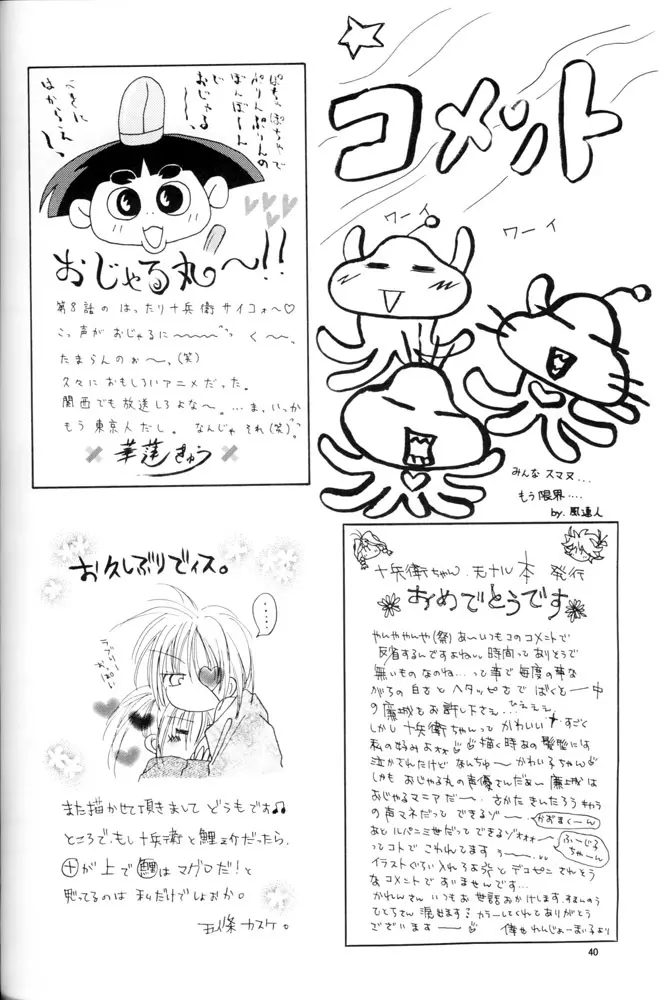 コメント
ワーイ
ワーイ
みんなスマヌ...
もう限界....
by.風道人
ぽちゃぽちゃで
ぷりんぷりんの
ぼんぼーん
じ、
おじゃる、
おじゃる丸〜!!
第8話の はったり十兵衛サイコォ〜♡
こっ声が おじゃるに〜〜〜〜 く〜〜、
たまらんのぉ〜〜、(笑)
久々におもしろいアニメだった。
関西でも放送しろよな〜。…ま、いっか
もう東京人だし。 なんじゃ それ(笑)
華蓮きゅう
お久しぶりでィス。
.....
ラブリー
っぽい
また描かせて頂きまして どうもです♫
ところで、もし十兵衛と鯉之介だったら、
㊉が上で鯉はマグロだ!と
思ってるのは 私だけでしょおか。
五條カスケ。
十兵衛ちゃん.モナル本 発行
おめでとうです
やんややんや(祭) あ〜いつもコのコメントで
反省するんですよねぃ。時間ってありそうで
無いものなのね…って事で毎度の事な
がらの白さとヘタッぴさで ばくと一中
の廉城をお許し下さぇ...ひえぇぇ
しかし 十兵衛ちゃんって かわいい すごく
描く時あの髪型には
泣かされたけど なんちゅ〜 かわい子ちゃん
しかも おじゃる丸の声優さんだぁい 廉城は
おじゃるマニアだ〜. さかた きんたろう
の声マネだって できるゾ〜
かおまくーん
あと ルパン三世だって できるゾォォォ〜
ふーじこ
ちゃーん
ってコトで こわれてます
イラストぐらい入れろよ とデコピン されそう
なコメントで すいませんです...
かれんさん いつもお世話おかけします.
カラーしてくれてありがとう
ございます〜
40